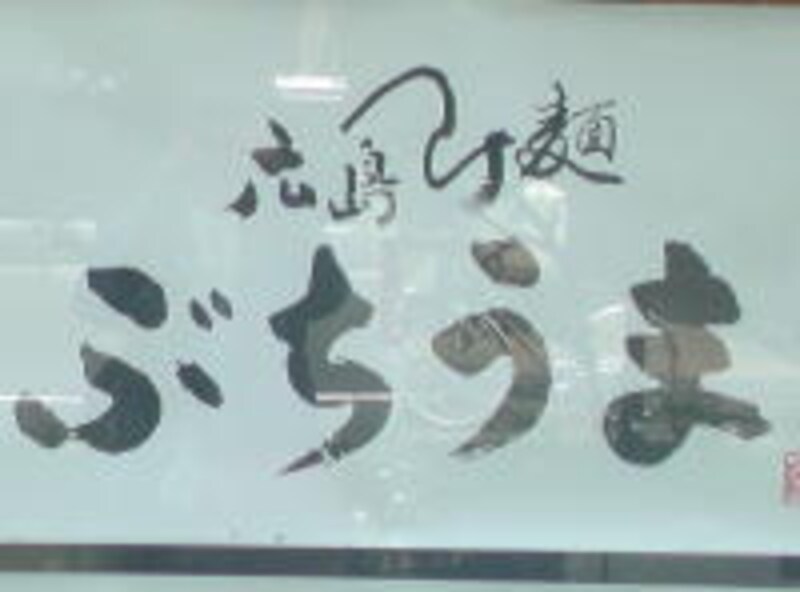 広島つけ麺
ぶちうま